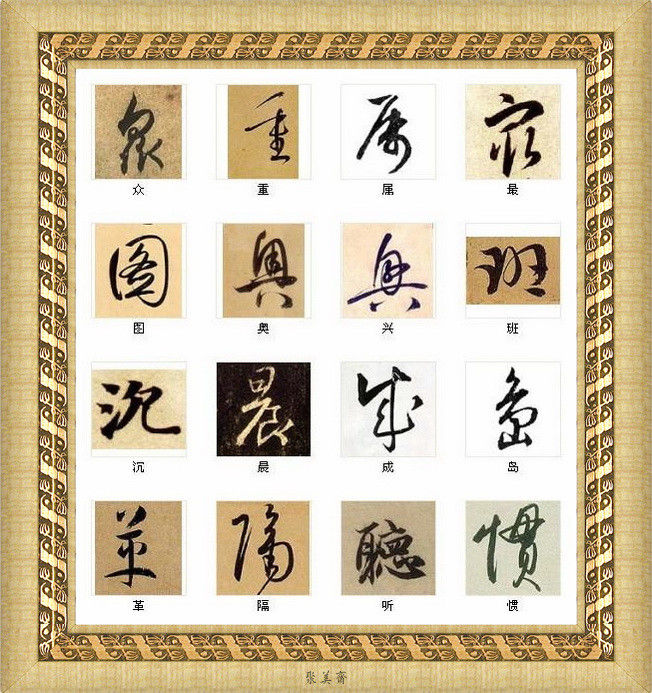 眾 重 属 最
众 重 属 最
图 奥 兴 班
图 奥 兴 班
沉 晨 成 岛
沉 晨 成 岛
革 隔 聽 慣
革 隔 听 惯
聚美齋